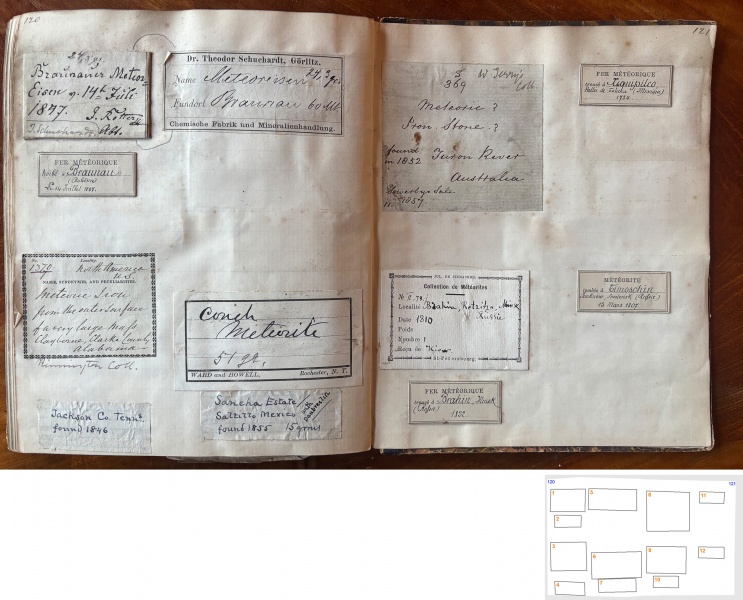 120
24/3/93
Braunauer Meteor-
Eisen v. 14t Juli
1847.
Dr. Theodor Schuchardt, Görlitz.
Name Meteoreisen 24.3 gr.
Fundort Braunau
Chemische Fabrik und Mineralienhandlung.
FER MÉTÉORIQUE
tombé à Braunau
(Bohême)
Le 14 Juillet 1847.
No.
1370
Locality.
North America
U.S.
NAME, SYNONYMS, AND PECULIARITIES.
Meteoric Iron
from the outer surface
of a very large mass
Claybourne, Clarke County,
Alabama
Coll.
Conch
Meteorite
51 gr.
WARD and HOWELL, Rochester, N. Y.
Jackson Co. Tenns.
found 1846
Sancha Estate
Saltillo Mexico
found 1855 15 grms
with
121
5
369
W Terry's
Coll.
Meteoric ?
Iron Stone ?
found
in 1852 Turon River
Australia
Sowerby Sale
1857
FER MÉTÉORIQUE
trouvé à Xiquipilco
Vallée de Toluca (Mexique)
1784
Collection de Météorites
№ II. 79.
Localité Brahin, Retzitza, Minsk
Russie
Date 1810
Poids
Nombre 1
Reçu de Kiew
St-Pétersbourg.
FER MÉTÉORIQUE
trouvé à Brahin, Minsk
(Russie)
1822
MÉTÉORITE
tombée à Timoschin
Smolensk (Russie)
13 Mars 1807
120
121
1
2
3
4
5
6
7
8
9
10
11
12